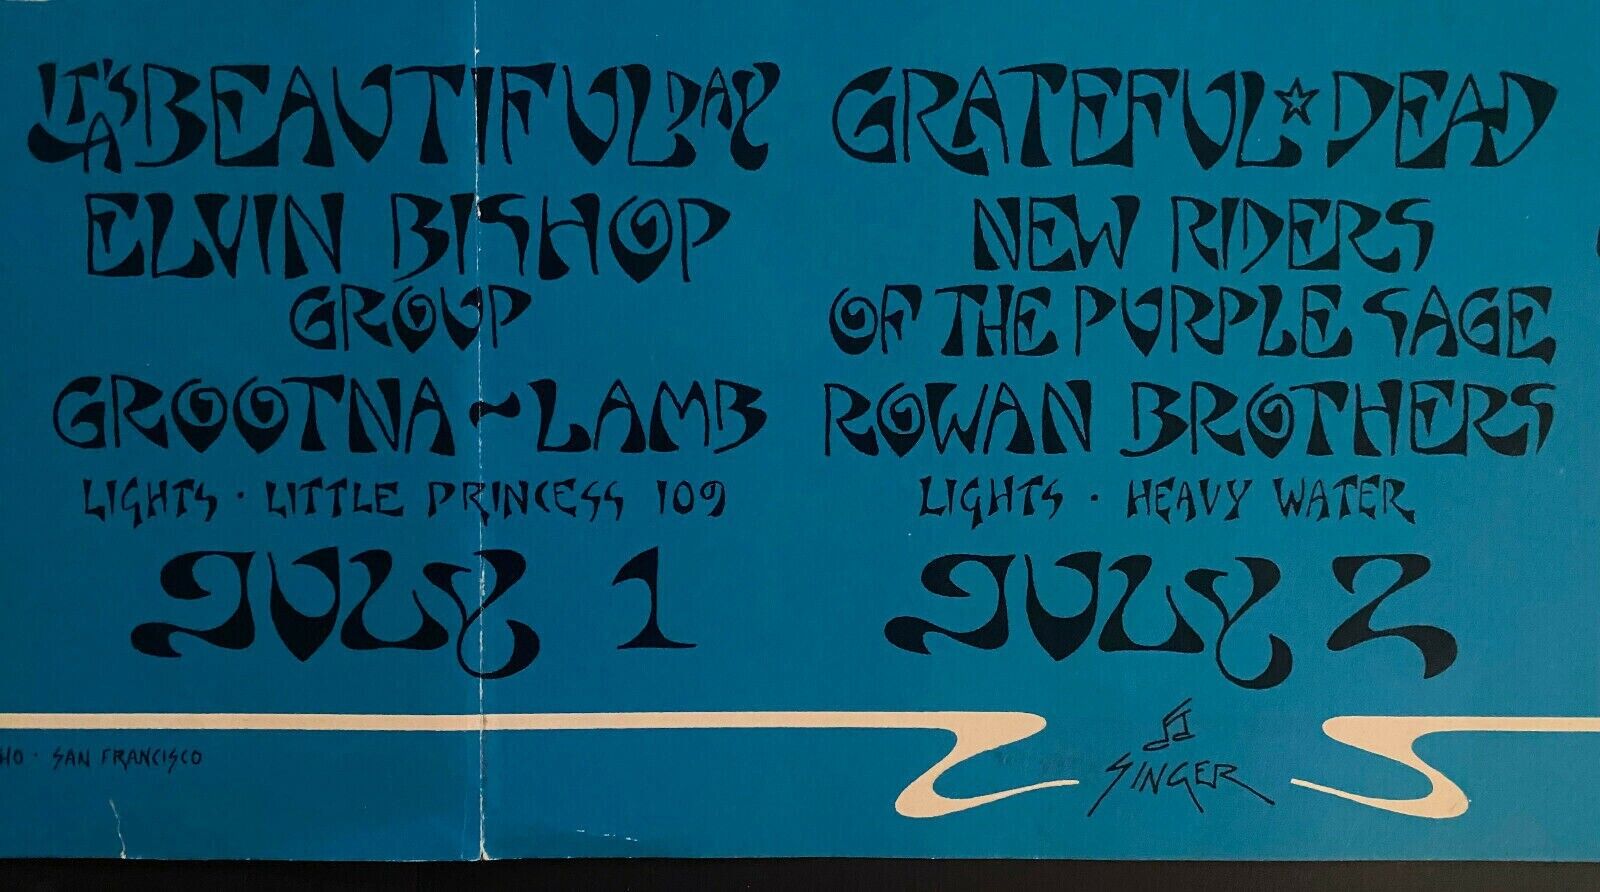 IT'S A BEAUTIFUL DAY
ELVIN BISHOP
GROUP
GROOTNA ~ LAMB
LIGHTS · LITTLE PRINCESS 109
JULY 1
GRATEFUL ☆ DEAD
NEW RIDERS
OF THE PURPLE SAGE
ROWAN BROTHERS
LIGHTS · HEAVY WATER
JULY 2
HO · SAN FRANCISCO
SINGER